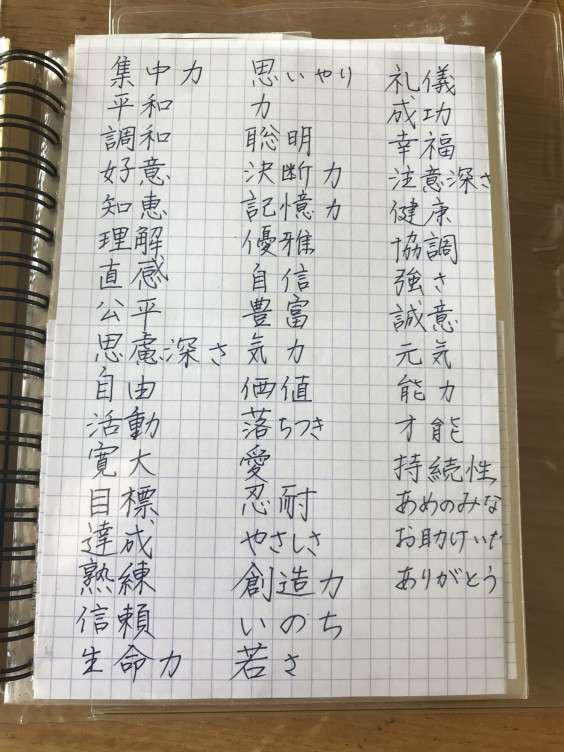 集中力
平和
調和
好意
知恵
理解
直感
公平
思慮深さ
自由
活動
寛大
目標
達成
熟練
信頼
生命力
思いやり
力
聡明
決断力
記憶力
優雅
自信
豊富
気力
価値
落ちつき
愛
忍耐
やさしさ
創造力
いのち
若さ
礼儀
成功
幸福
注意深さ
健康
協調
強さ
誠意
元気
能力
才能
持続性
あめのみな
お助けいた
ありがとう